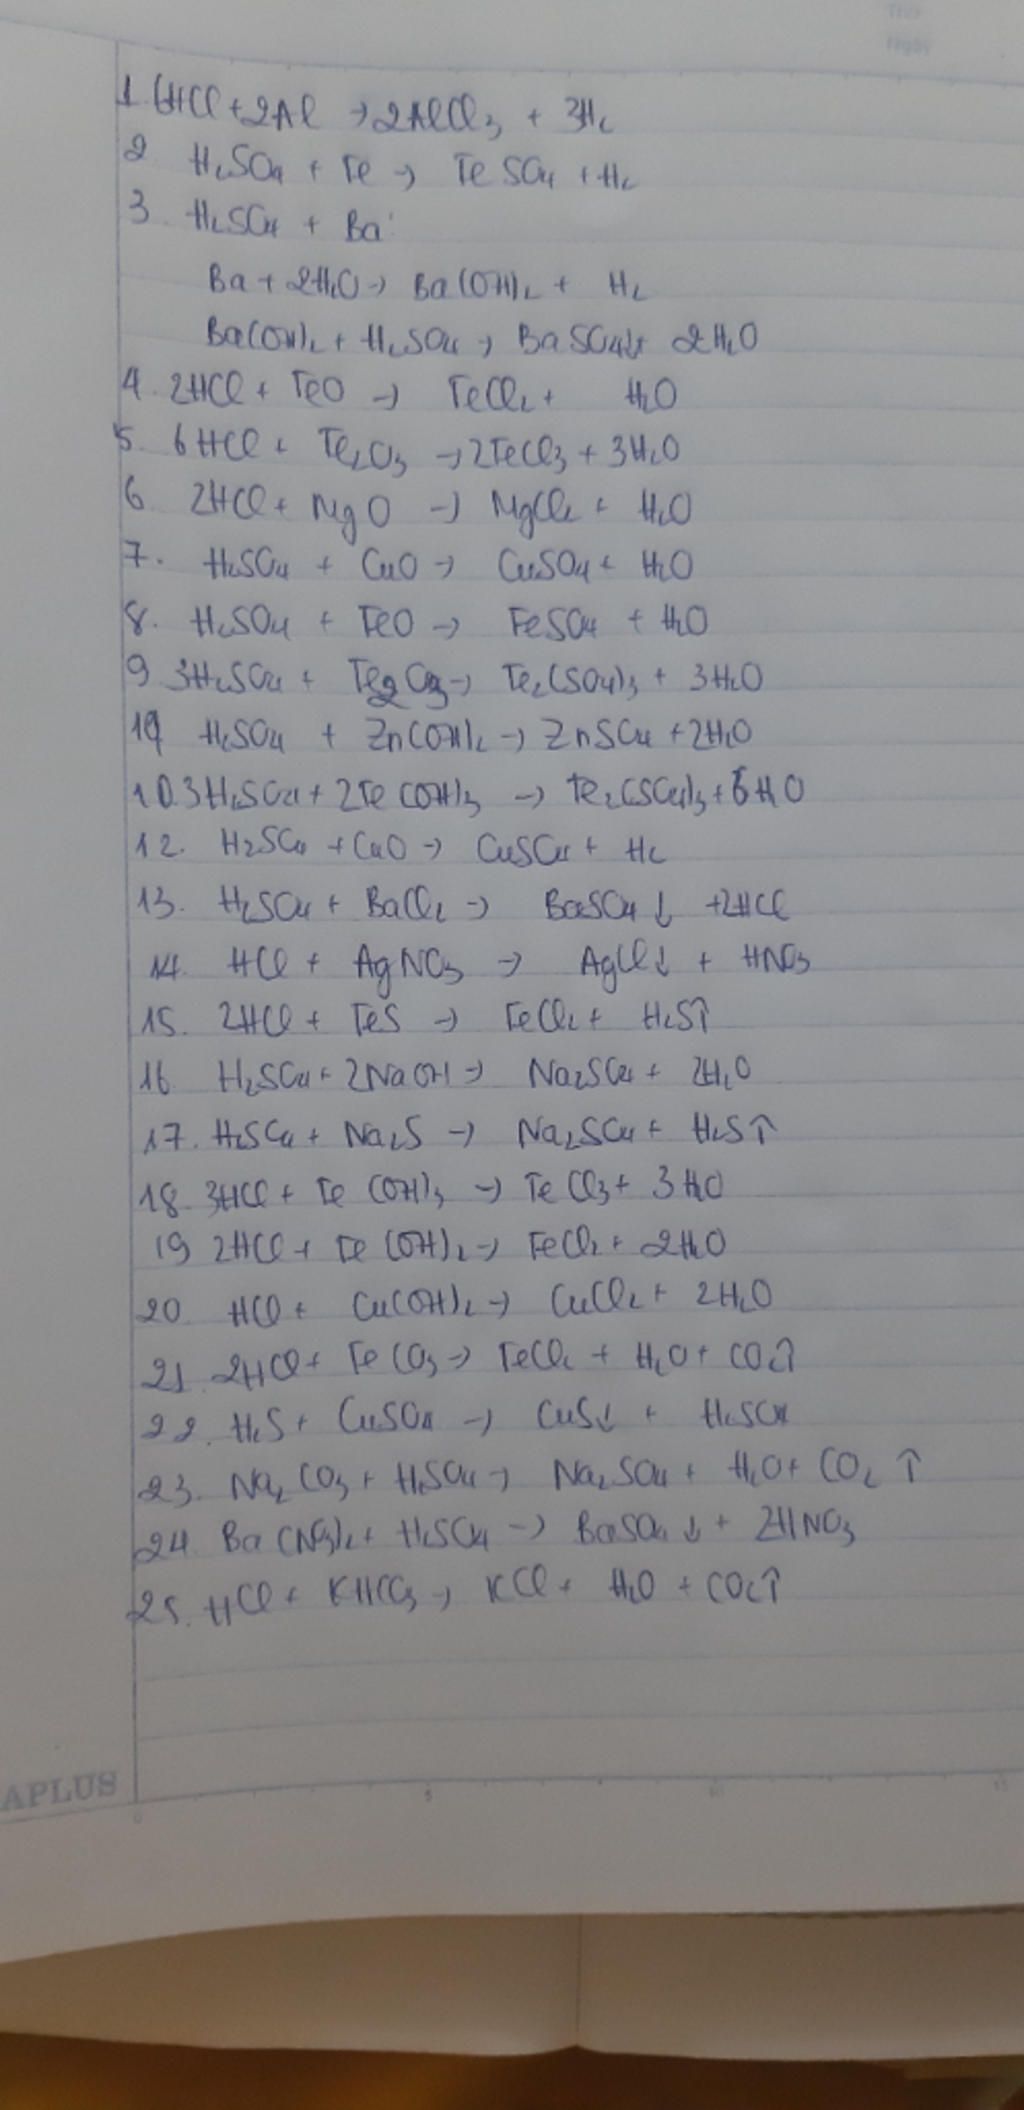 Thứ
Ngày
1. 6HCl + 2Al → 2AlCl3 + 3H2
2 H2SO4 + Fe → FeSO4 + H2
3. H2SO4 + Ba:
Ba + 2H2O → Ba(OH)2 + H2
Ba(OH)2 + H2SO4 → BaSO4↓ + 2H2O
4. 2HCl + FeO → FeCl2 + H2O
5. 6HCl + Fe2O3 → 2FeCl3 + 3H2O
6 2HCl + MgO → MgCl2 + H2O
7. H2SO4 + CuO → CuSO4 + H2O
8. H2SO4 + FeO → FeSO4 + H2O
9 3H2SO4 + Fe2O3 → Fe2(SO4)3 + 3H2O
H2SO4 + Zn(OH)2 → ZnSO4 + 2H2O
10. 3H2SO4 + 2Fe(OH)3 → Fe2(SO4)3 + 6H2O
12. H2SO4 + CuO → CuSO4 + H2
13. H2SO4 + BaCl2 → BaSO4 ↓ + 2HCl
14. HCl + AgNO3 → AgCl↓ + HNO3
15. 2HCl + FeS → FeCl2 + H2S↑
16 H2SO4 + 2NaOH → Na2SO4 + 2H2O
17. H2SO4 + Na2S → Na2SO4 + H2S↑
18. 3HCl + Fe(OH)3 → FeCl3 + 3H2O
19 2HCl + Fe(OH)2 → FeCl2 + 2H2O
20 HCl + Cu(OH)2 → CuCl2 + 2H2O
21. 2HCl + FeCO3 → FeCl2 + H2O + CO2↑
22. H2S + CuSO4 → CuS↓ + H2SO4
23. Na2CO3 + H2SO4 → Na2SO4 + H2O + CO2 ↑
24 Ba(NO3)2 + H2SO4 → BaSO4 ↓ + 2HNO3
25. HCl + KHCO3 → KCl + H2O + CO2↑
APLUS
0 5 10 15